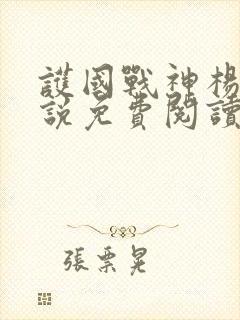 護國戰神楊
說免費閱讀
張票晃